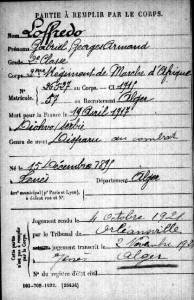 PARTIE À REMPLIR PAR LE CORPS.
Nom Loffredo
Prénoms Gabriel Georges Armand
Grade 2e Classe
Corps Régiment de Marche d'Afrique
N° au Corps. — Cl. 1915
Matricule. 57 au Recrutement Alger
Mort pour la France le 19 Avril 1917
à Serbie
Genre de mort Disparu au combat
Né le 15 Décembre 1895
à Ténès Département Alger
Arr' municipal (p' Paris et Lyon),
à défaut rue et N°.
Cette partie
n'est pas à remplir
par le Corps.
Jugement rendu le 4 Octobre 1921
par le Tribunal de Orléansville
jugement transcrit le 2 Novembre 1921
à Ténès Alger
N° du registre d'état civil